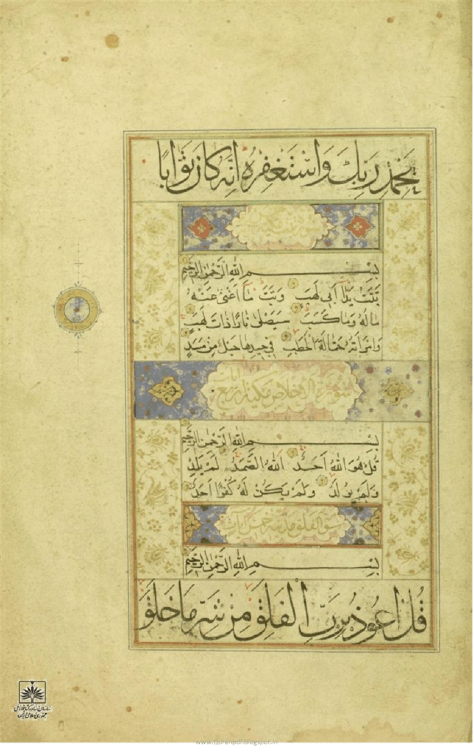 بحمد ربك واستغفره انه كان توابا
بسم الله الرحمن الرحيم
تبت يدا أبى لهب وتبت ما أغنى عنه
ماله وما كسب سيصلى نارا ذات لهب
وامرأته حمالة الحطب فى جيدها حبل من مسد
سورة الاخلاص مكية اربع
بسم الله الرحمن الرحيم
قل هو الله أحد الله الصمد لم يلد
ولم يولد ولم يكن له كفوا احد
سورة الفلق خمس آيات
بسم الله الرحمن الرحيم
قل اعوذ برب الفلق من شر ما خلق